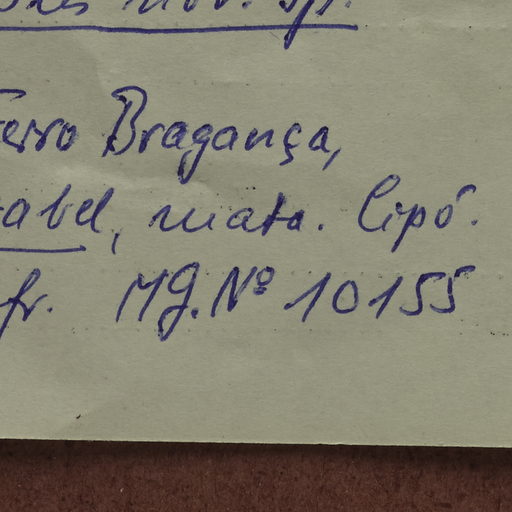 nov. sp.
Ferro Bragança,
abel, mata. Cipó.
fr. Mg. Nº 10155